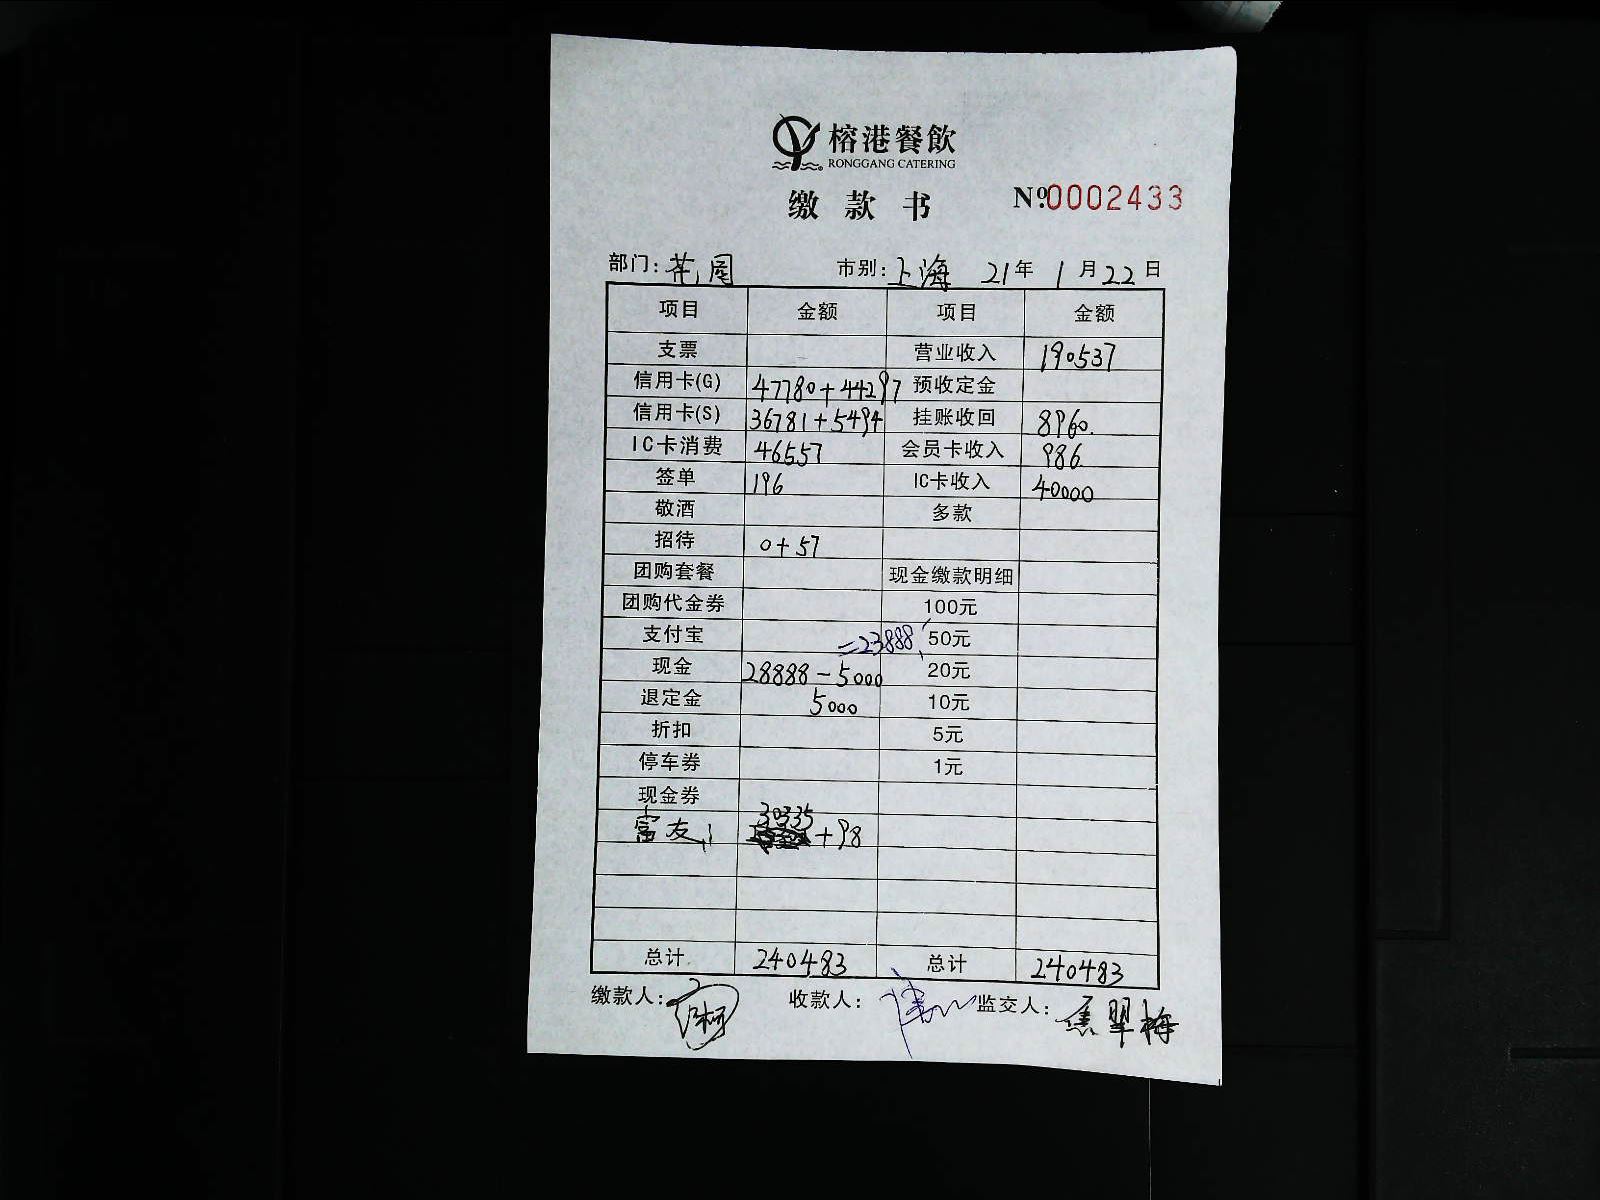 榕港餐飲
RONGGANG CATERING
缴款书 №0002433
部门: 花园 市别: 上海 21年 1月22日
项目 金额 项目 金额
支票 营业收入 190537
信用卡(G) 47780+44297 预收定金
信用卡(S) 36781+5494 挂账收回 8960.
IC卡消费 46557 会员卡收入 986.
签单 196 IC卡收入 40000
敬酒 多款
招待 0+57
团购套餐 现金缴款明细
团购代金券 100元
支付宝 =23888 50元
现金 28888-5000 20元
退定金 5000 10元
折扣 5元
停车券 1元
现金券
富友 30335+98
总计 240483 总计 240483
缴款人: 收款人: 监交人: 焦翠梅